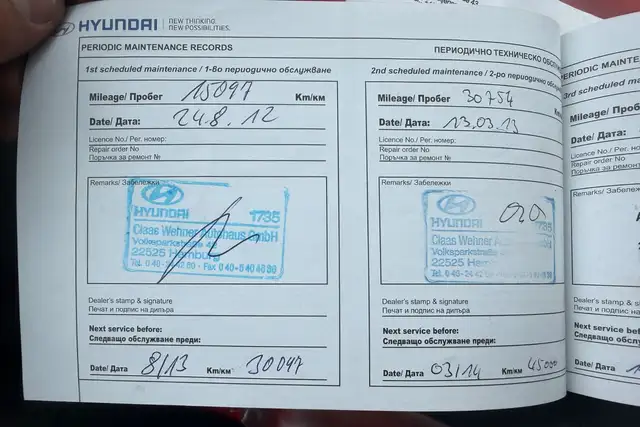 HYUNDAI NEW THINKING.
NEW POSSIBILITIES.
PERIODIC MAINTENANCE RECORDS
ПЕРИОДИЧНО ТЕХНИЧЕСКО
1st scheduled maintenance / 1-во периодично обслужване
Mileage/ Пробег 15097 Km/км
Date/ Дата: 24.8.12
Licence No./ Рег. номер:
Repair order No
Поръчка за ремонт №
Remarks/ Забележки
HYUNDAI 1735
Claas Wehner Autohaus GmbH
Volksparkstraße
22525 Hamburg
Dealer's stamp & signature
Печат и подпис на дилъра
Next service before:
Следващо обслужване преди:
Date/ Дата 8/13 Km/км 30097
2nd scheduled maintenance / 2-ро периодично
Mileage/ Пробег 30754 Km/км
Date/ Дата: 13.03.13
Licence No./ Рег. номер:
Repair order No
Поръчка за ремонт №
Remarks/ Забележки
HYUNDAI 1735
Claas Wehner
Volksparkstraße
22525
Dealer's stamp & signature
Печат и подпис на дилъра
Next service before:
Следващо обслужване преди:
Date/ Дата 03/14 Km/км 45000
PERIODIC
3rd scheduled
Mileage/
Date/ Дата:
Licence No./ Рег.
Repair order No
Поръчка за ремонт
Remarks/ Забележки
Dealer's stamp &
Печат и подпис на
Next service before:
Следващо обслужване
Date/ Дата